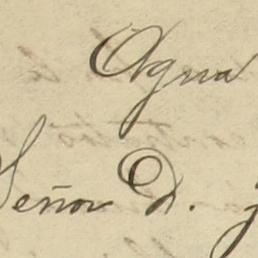 Agua
Señor D.